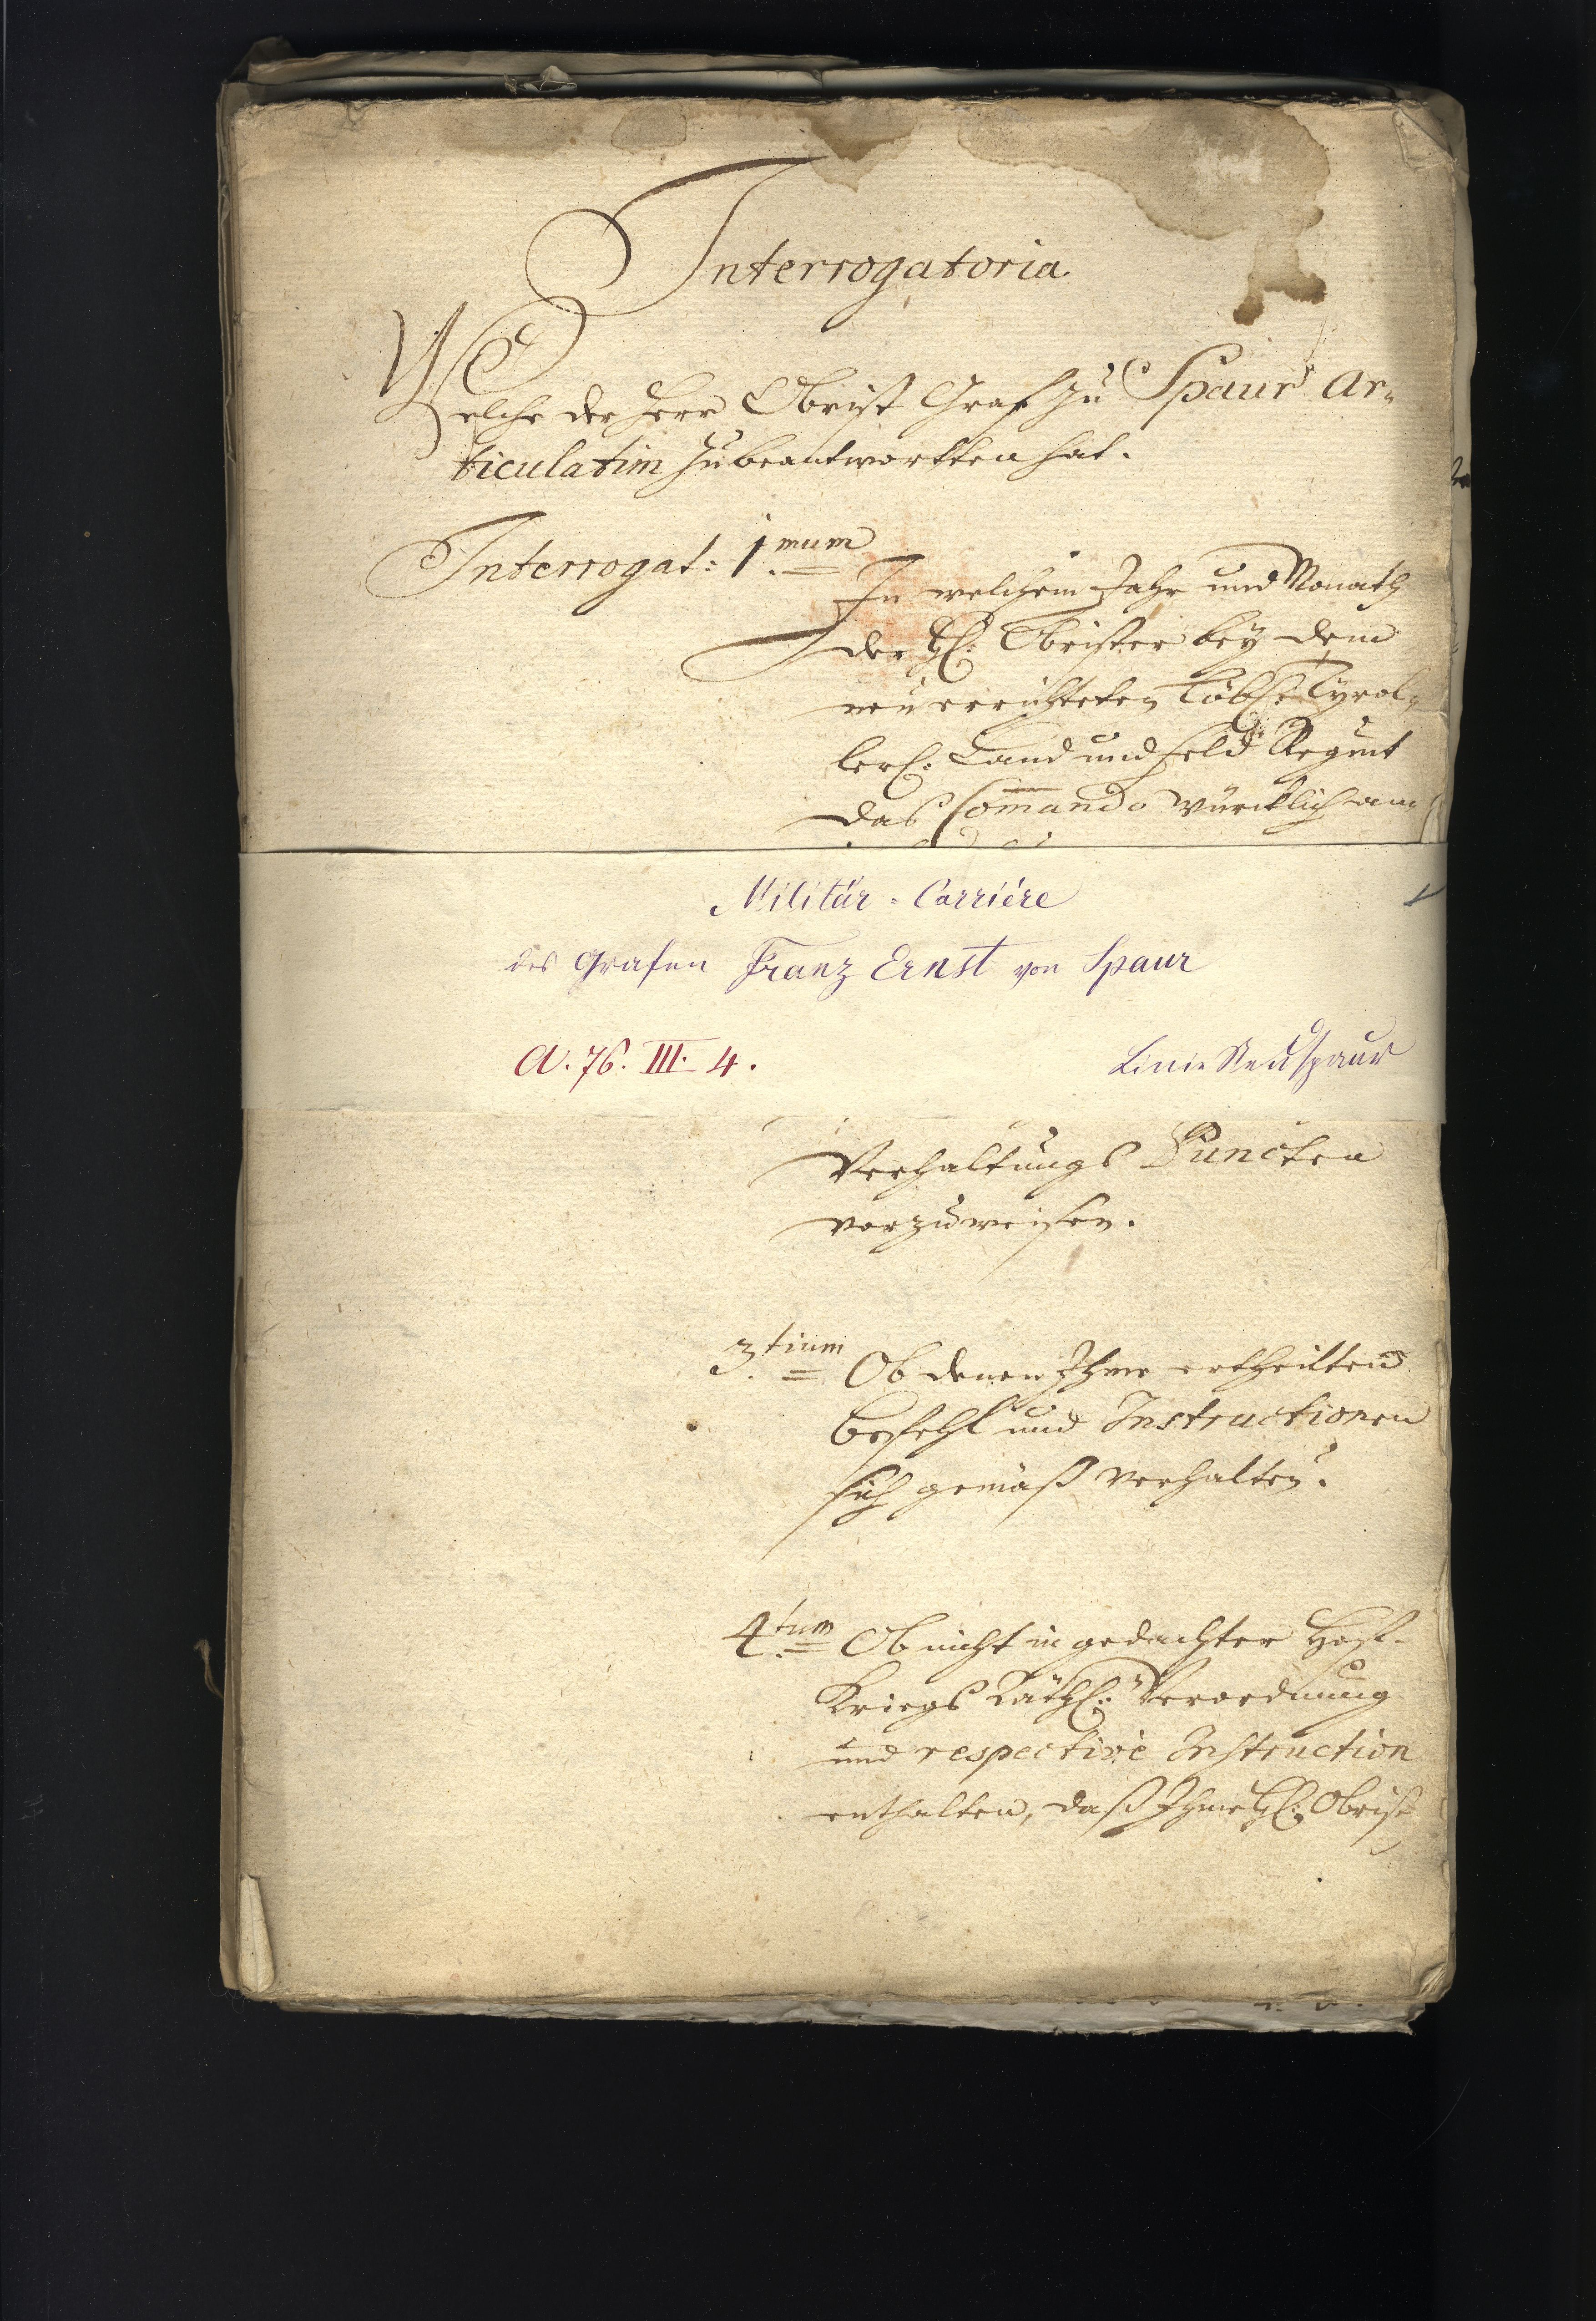 Interrogatoria
Welche der Herr Obrist Graf zu Spaur Ar-
ticulatim zubeantwortten hat.
Interrogat: 1.mum
In welchem Jahr und Monath
der H: Obrister bey dem
neu errichteten Löbl: Tyrol-
lerl: Land und Feld Regmt
das Commando würcklich an-
Militär-Carriére
des Grafen Franz Ernst von Spaur
A. 76. III. 4.
Linie Neuspaur
Verhaltungs Puncten
vorzuweisen.
3.tium Ob denen Ihme ertheilten
befehl und Instructionen
sich gemäß verhalten.
4.tum Ob nicht in gedachter Hof-
Kriegs Räthl: Verordnung
und respective Instruction
enthalten, daß Ihme H: Obrist